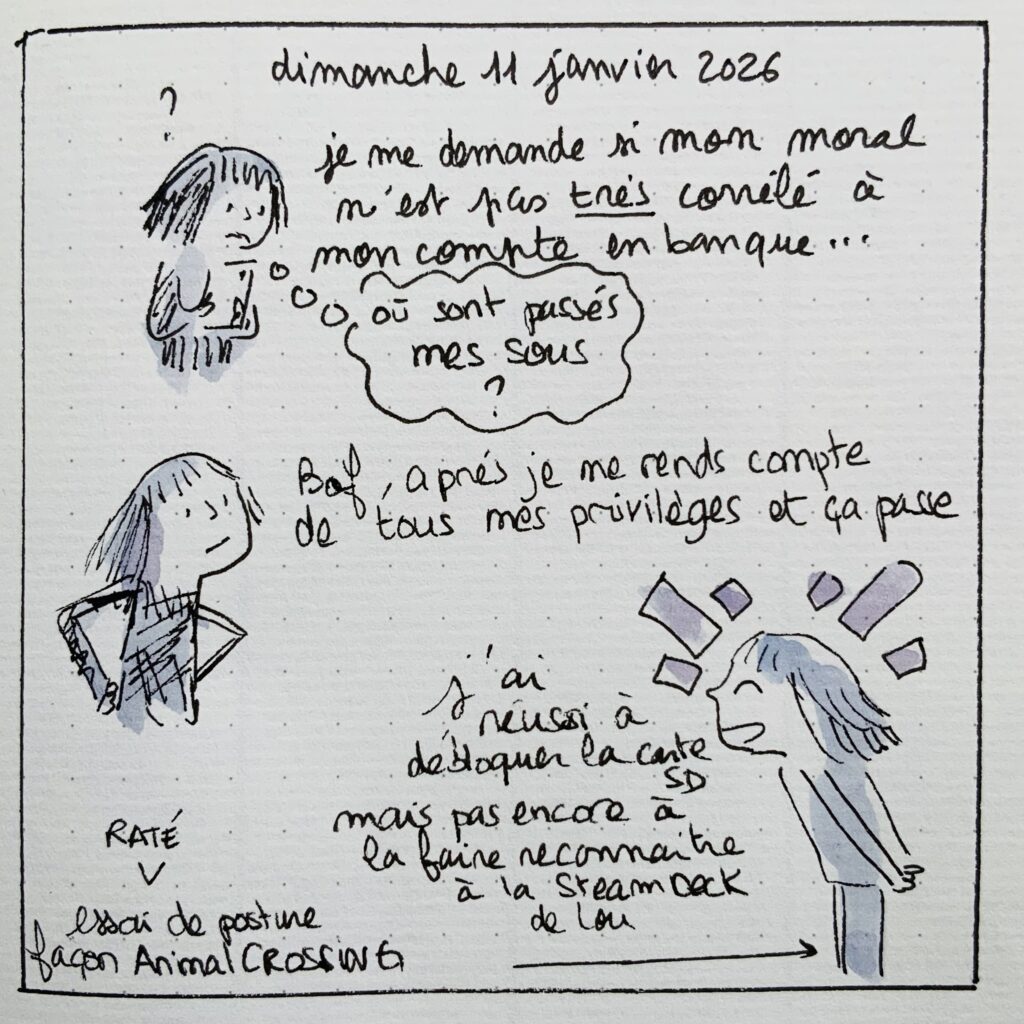 dimanche 11 janvier 2026
?
je me demande si mon moral
n'est pas très corrélé à
mon compte en banque...
où sont passés
mes sous
?
Bof, après je me rends compte
de tous mes privilèges et ça passe
j'ai
réussi à
débloquer la carte
SD
mais pas encore à
la faire reconnaitre
à la SteamDeck
de Lou
RATÉ
essai de posture
façon Animal CROSSING